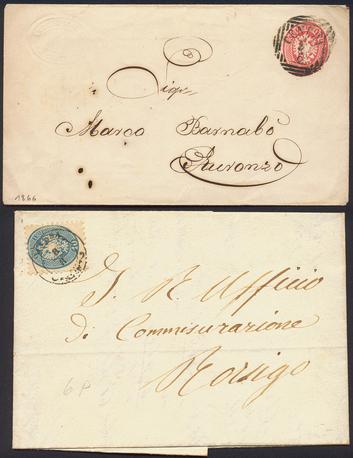 Sigr
Marco Barnabò
Auronzo
1866
I. R. Ufficio
di Commisurazione
Rovigo
6 P